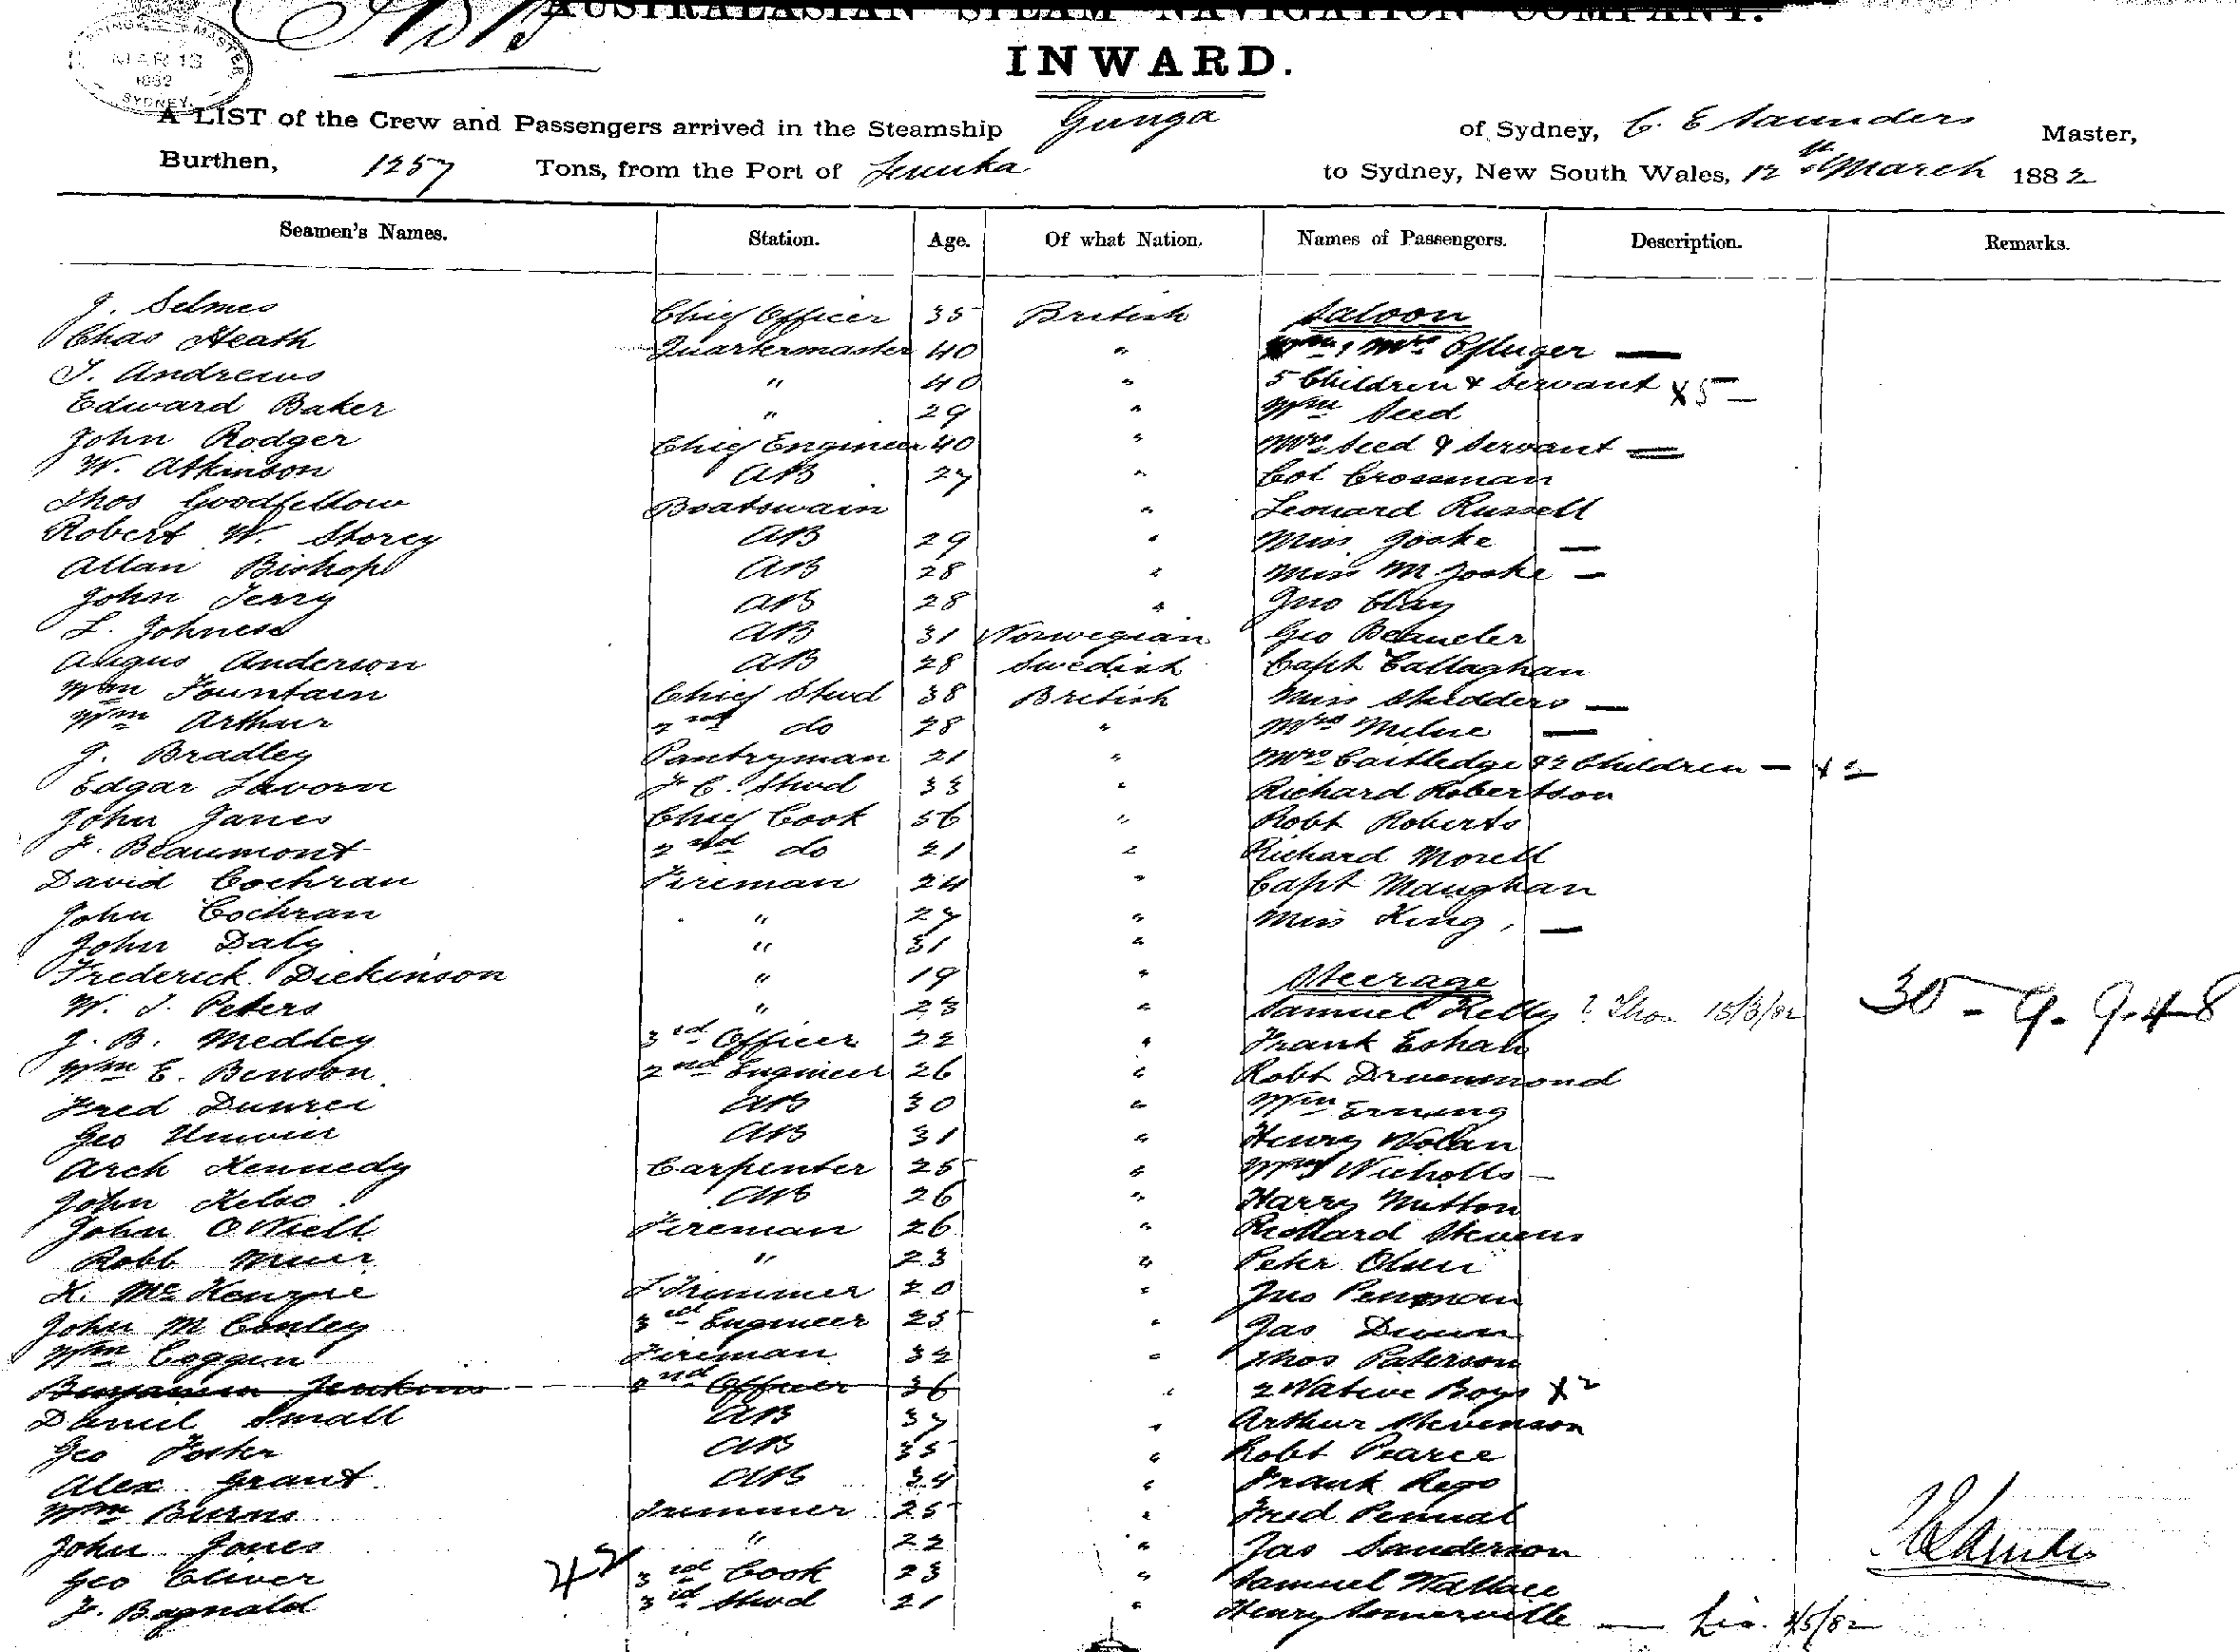 AUSTRALASIAN STEAM NAVIGATION COMPANY.
INWARD.
MASTER
MAR 13
1882
SYDNEY.
A LIST of the Crew and Passengers arrived in the Steamship Gunga of Sydney, C. E Saunders Master,
Burthen, 1257 Tons, from the Port of Levuka to Sydney, New South Wales, 12th March 1882
Seamen's Names. Station. Age. Of what Nation. Names of Passengers. Description. Remarks.
J. Selmes Chief Officer 35 British Saloon
Chas Heath Quartermaster 40 " Mrs Pfluger —
T. Andrews " 40 " 5 Children & Servant x5 —
Edward Baker " 29 " Wm Seed
John Rodger Chief Engineer 40 " Mrs Seed & Servant —
W. Atkinson AB 27 " Col Crossman
Thos Goodfellow Boatswain " Leonard Russell
Robert W. Storey AB 29 " Miss Joske —
Allan Bishop AB 28 " Miss M Joske —
John Terry AB 28 " Jno Clay
L. Johnese AB 31 Norwegian Geo
Angus Anderson AB 28 Swedish Capt Callaghan
Wm Fountain Chief Stwd 38 British Miss —
Wm Arthur 2nd do 28 " Mrs Milne —
J. Bradley Pantryman 21 " Mrs Cartledge & 2 Children — x 2
Edgar F. C. Stwd 33 " Richard Robertson
John Janes Chief Cook 56 " Robt Roberts
F. Beaumont 2nd do 21 " Richard Morell
David Cochran Fireman 24 " Capt Maughan
John Cochran " 27 " Miss King, —
John Daly " 31 "
Frederick Dickinson " 19 " Steerage
W. J. Peters " 23 " Samuel Kelly ? Thos 15/3/82 30 - 9. 9.48
J. B. Medley 3rd Officer 22 " Frank
Wm E. Benson 2nd Engineer 26 " Robt Drummond
Fred AB 30 " Wm
Geo Unwin AB 31 " Henry Nolan
Arch Kennedy Carpenter 25 " Nicholls —
John Kelso AB 26 " Harry Mutton
John O'Niell Fireman 26 " Richard Stevens
Robt Muir " 23 " Peter Olsen
K. McKenzie F. Trimmer 20 " Jno Penman
John M Conley 3rd Engineer 25 " Jas Dunn
Wm Coggen Fireman 32 " Thos Paterson
Benjamin Jenkins 2nd Officer 36 " 2 Native Boys x2
Daniel Small AB 37 " Arthur Stevenson
Geo Foster AB 35 " Robt Pearce
Alex Grant AB 34 " Frank Rego
Wm Burns Trimmer 25 " Fred
John Jones " 22 " Jas Sanderson
Geo Oliver 42 3rd Cook 23 " Samuel Wallace
F. Bagnald 3rd Stwd 21 " Henry Somerville —